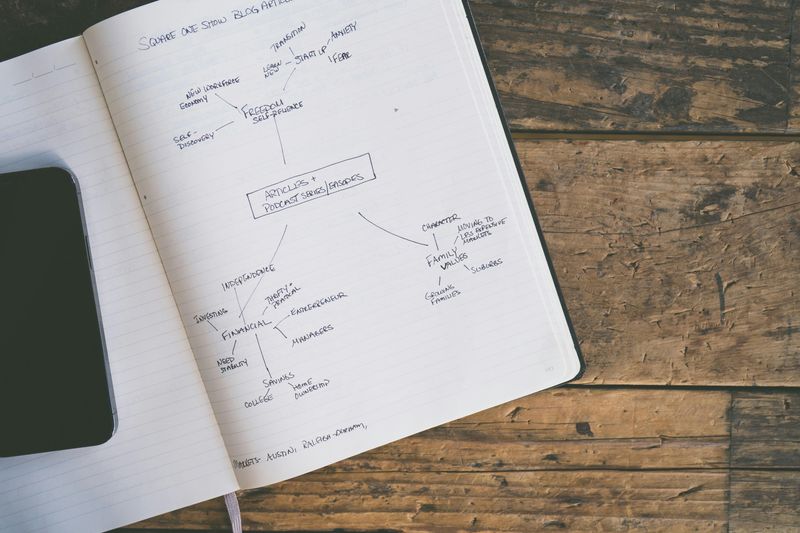 SQUARE ONE SHOW BLOG ARTICL
TRANSITION
ANXIETY
LEARN
NEW
START UP
FEAR
NEW WORKFORCE
ECONOMY
FREEDOM
SELF-RELIENCE
SELF-
DISCOVERY
ARTICLES +
PODCAST SERIES/EPISODES
CHARACTER
MOVING TO
LESS EXPENSIVE
MARKETS
FAMILY
VALUES
SUBURBS
GROWING
FAMILIES
INDEPENDENCE
THRIFTY +
PRACTICAL
INVESTING
FINANCIAL
ENTREPRENEUR
MANAGERS
NEED
STABILITY
SAVINGS
COLLEGE
HOME
OWNERSHIP
MARKETS- AUSTIN, RALEIGH-DURHAM,